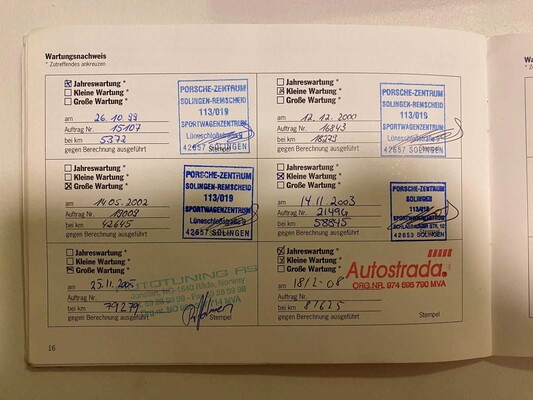 Wartungsnachweis
* Zutreffendes ankreuzen
Jahreswartung *
Kleine Wartung *
Große Wartung *
am 26.10.99
Auftrag Nr. 15107
bei km 5372
gegen Berechnung ausgeführt
PORSCHE-ZENTRUM
SOLINGEN-REMSCHEID
113/019
SPORTWAGENZENTRUM
42657 SOLINGEN
Stempel
Jahreswartung *
Kleine Wartung *
Große Wartung *
am 12.12.2000
Auftrag Nr. 16843
bei km
gegen Berechnung ausgeführt
PORSCHE-ZENTRUM
SOLINGEN-REMSCHEID
113/019
SPORTWAGENZENTRUM
42657 SOLINGEN
Stempel
Jahreswartung *
Kleine Wartung *
Große Wartung *
am 14.05.2002
Auftrag Nr.
bei km 42645
gegen Berechnung ausgeführt
PORSCHE-ZENTRUM
SOLINGEN-REMSCHEID
113/019
SPORTWAGENZENTRUM
42657 SOLINGEN
Jahreswartung *
Kleine Wartung *
Große Wartung *
am 14.11.2003
Auftrag Nr. 21496
bei km 58845
gegen Berechnung ausgeführt
PORSCHE-ZENTRUM
SOLINGEN
113/019
SPORTWAGENZENTRUM
42651 SOLINGEN
Jahreswartung *
Kleine Wartung *
Große Wartung *
am 25.11.2005
Auftrag Nr.
bei km 79279
gegen Berechnung ausgeführt
Norway
MVA
Stempel
Jahreswartung *
Kleine Wartung *
Große Wartung *
am 18/2-08
Auftrag Nr.
bei km 81625
gegen Berechnung ausgeführt
Autostrada
ORG.NR. 974 695 790 MVA
Stempel
16